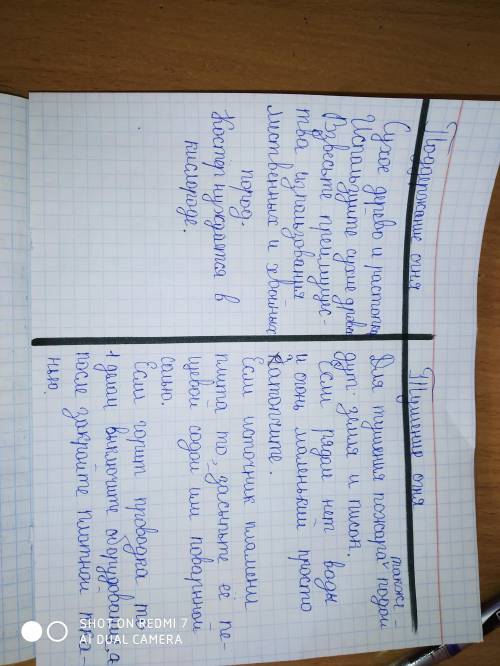 Поддержание огня
Сухое дерево и растопка
Используйте сухие дрова
Взвесьте преимущес-
тва использования
лиственных и хвойных
пород.
Костёр нуждается в
кислороде.
Тушение огня
Для тушения пожара также подой-
дут: земля и писок.
Если рядом нет воды
и огонь маленький просто
затопчите.
Если источник пламени
плита то засыпьте её пе-
щевой содой или поваренной
солью.
Если горит проводка то
думай выключите оборудование, а
после закройте плотной тка-
нью.
SHOT ON REDMI 7
AI DUAL CAMERA